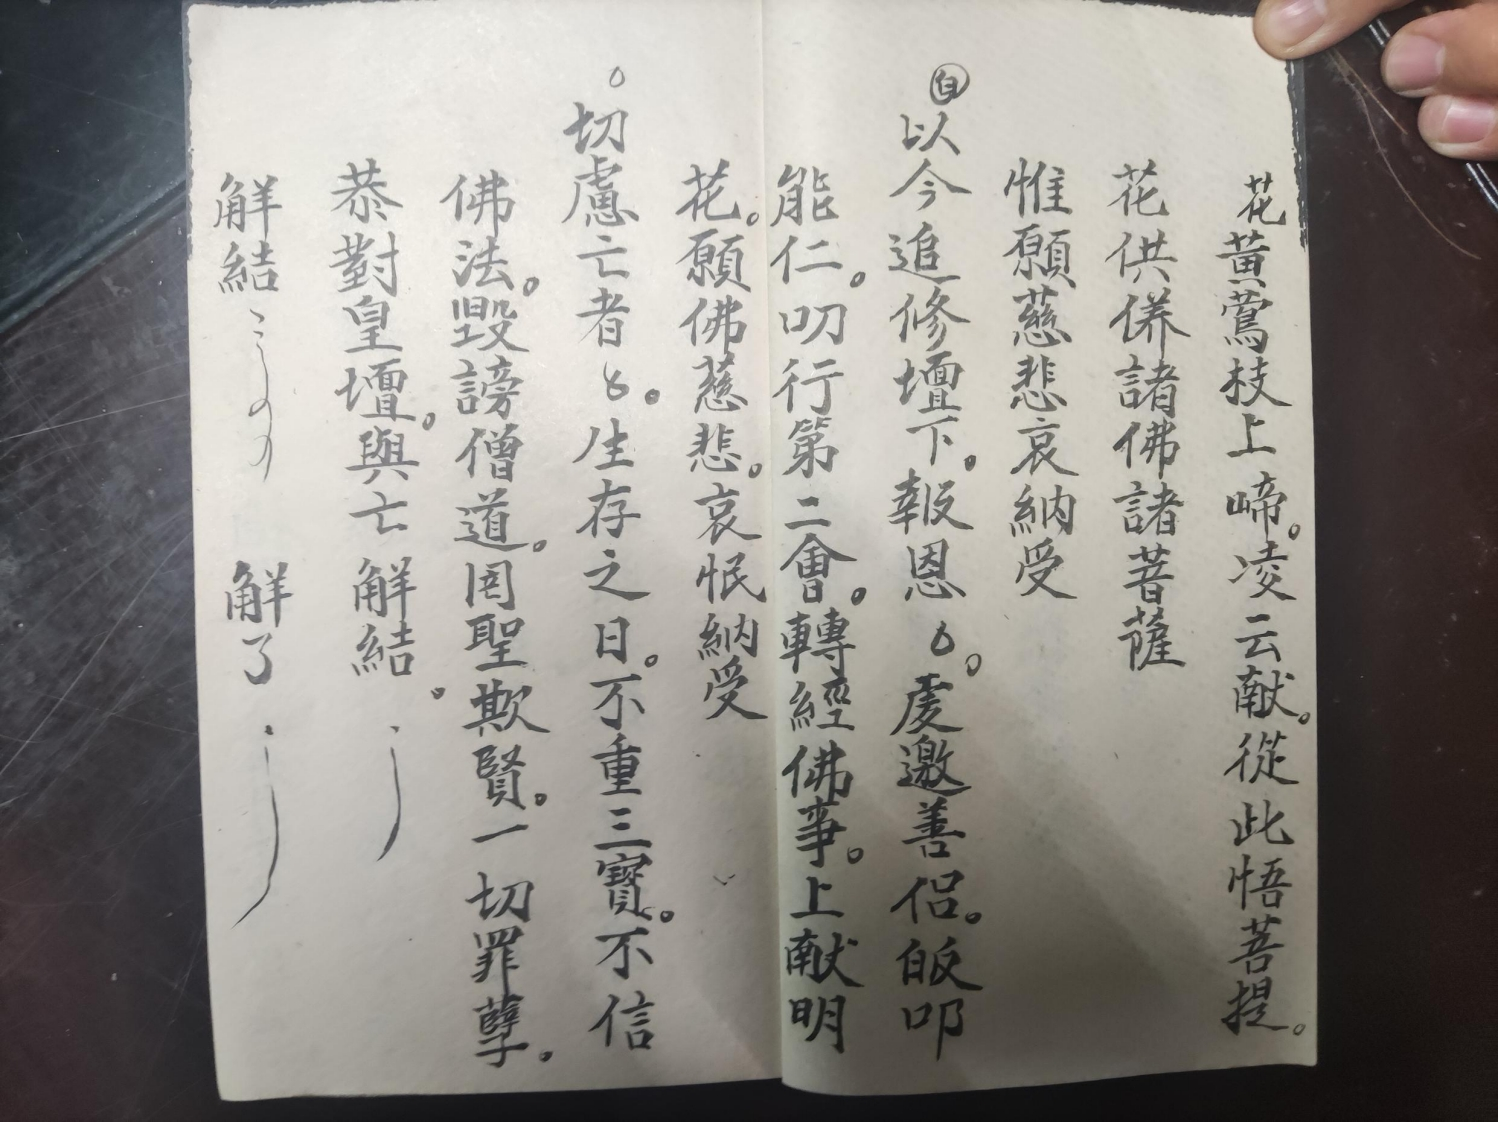 花黃鶯枝上啼。凌云献。從此悟菩提。
花供養諸佛諸菩薩
惟願慈悲哀納受
白
以今追修壇下。報恩。虔邀善侶。皈叩
能仁。叨行第二會。轉經佛事。上献明
花。願佛慈悲。哀恨納受
切慮亡者。生存之日。不重三寳。不信
佛法。毀謗僧道。罔聖欺賢。一切罪孽。
恭對皇壇。與亡解結。
解結 解了